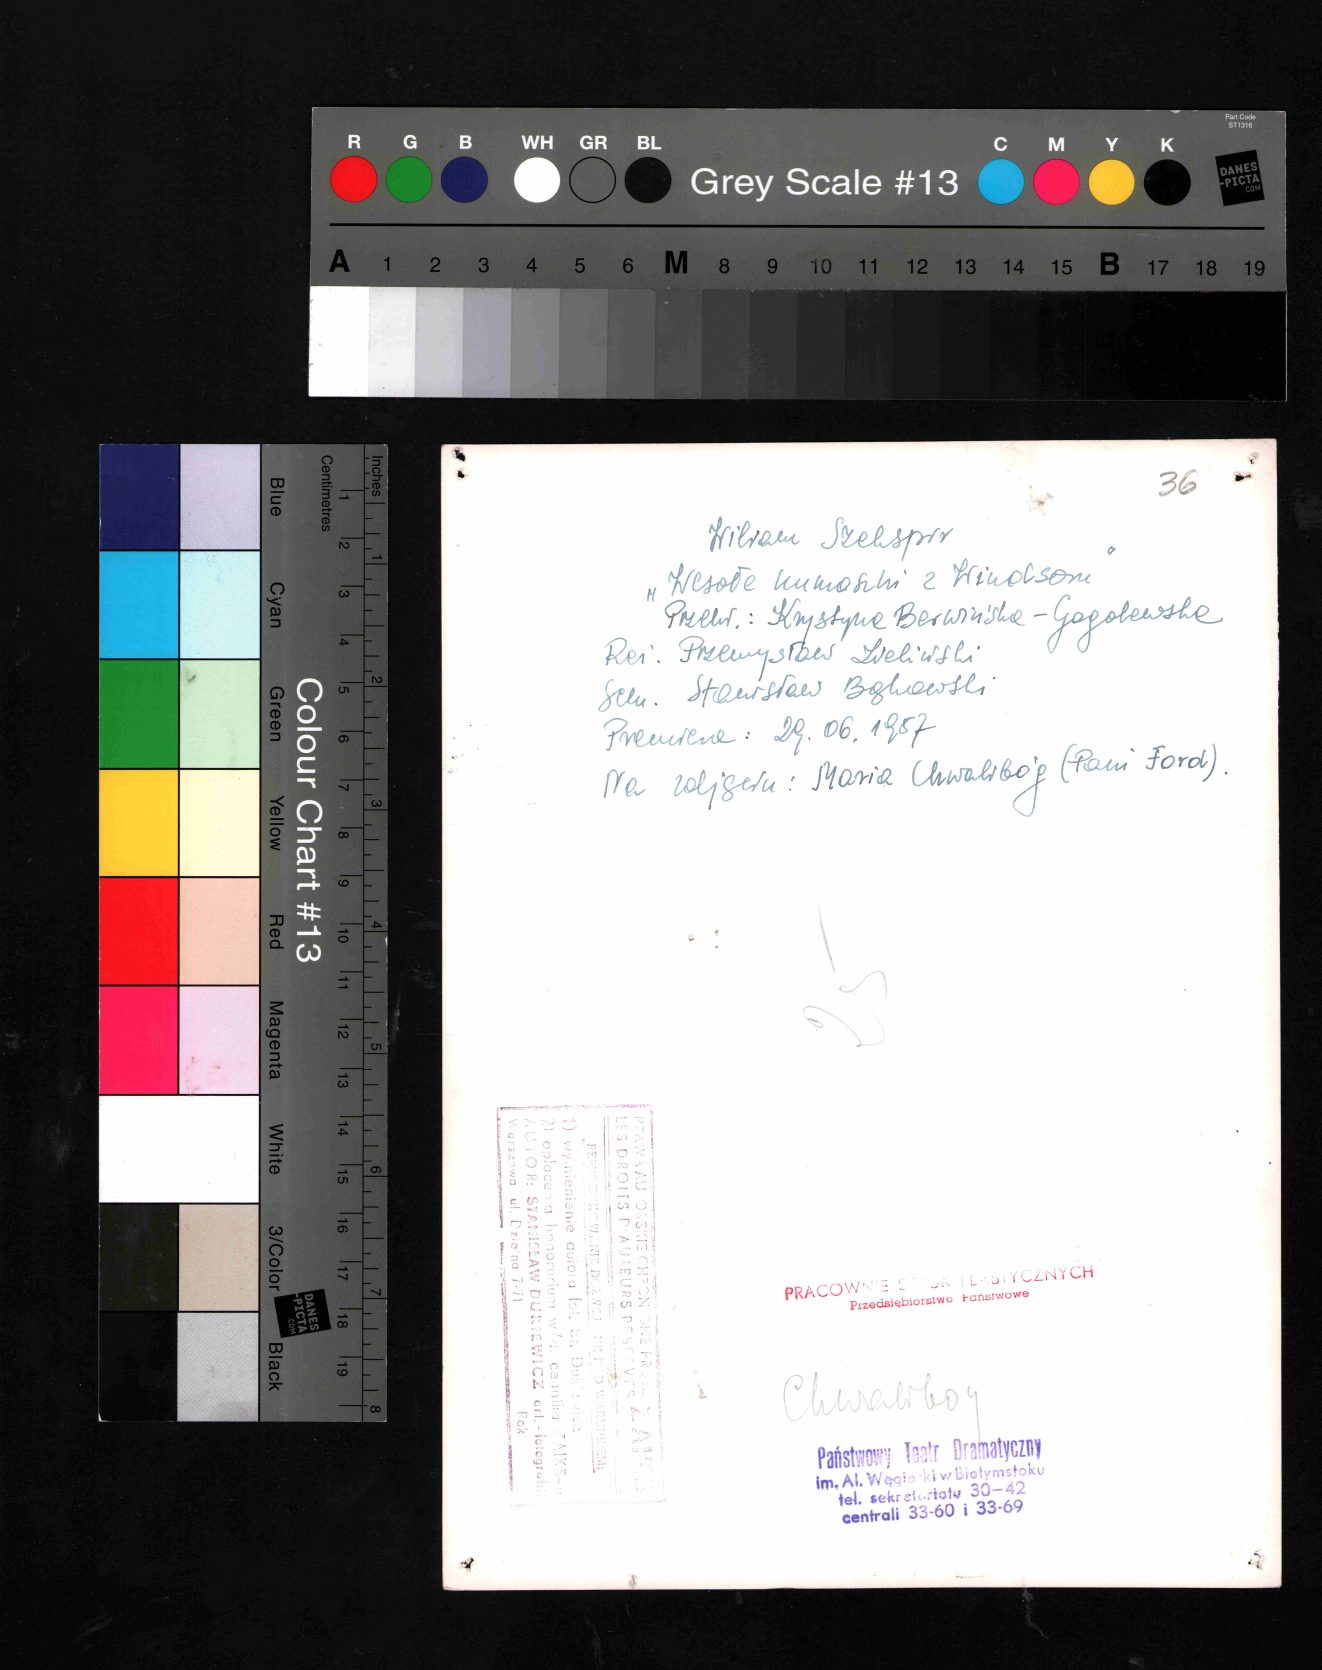 Part Code
ST1316
R G B WH GR BL Grey Scale #13 C M Y K
DANES
-PICTA
.COM
A 1 2 3 4 5 6 M 8 9 10 11 12 13 14 15 B 17 18 19
Inches
Centimetres
Colour Chart #13
Blue
Cyan
Green
Yellow
Red
Magenta
White
3/Color
Black
1 2 3 4 5 6 7 8 9 10 11 12 13 14 15 16 17 18 19
1 2 3 4 5 6 7 8
DANES
-PICTA
.COM
36
Wiliam Szekspir
„Wesołe kumoszki z Windsoru"
Przekł.: Krystyna Berwińska-Gogolewska
Reż. Przemysław Zieliński
Scen. Stanisław Bąkowski
Premiera: 29.06.1957
Na zdjęciu: Maria Chwalibóg (Pani Ford).
LES DROITS D'AUTEURS RESERVES ZAIKS
1) wymienienie autora fot. St.
2) opłacenia honorarium w/g. cennika ZAIKS-u
AUTOR: STANISŁAW DUKIEWICZ art.-fotografik
Warszawa ul. Dzielna 7-71 Rok
PRACOWNIE SZTUK PLASTYCZNYCH
Przedsiębiorstwo Państwowe
Chwalibog
Państwowy Teatr Dramatyczny
im. Al. Węgierki w Białymstoku
tel. sekretariatu 30-42
centrali 33-60 i 33-69